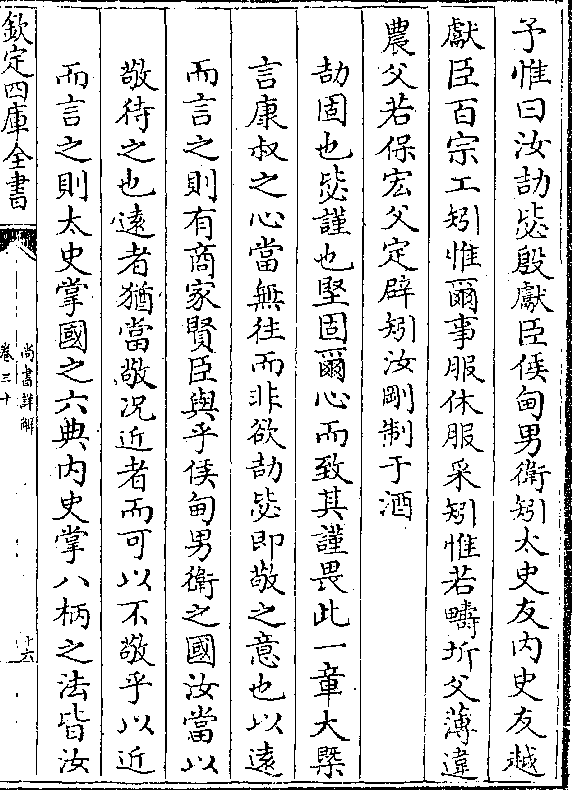 予惟曰汝劼毖殷獻臣侯甸男衛矧太史友内史友越
獻臣百宗工矧惟爾事服休服采矧惟若疇圻父薄違
農父若保宏父定辟矧汝剛制于酒
劼固也毖謹也堅固爾心而致其謹畏此一章大槩
言康叔之心當無往而非欲劼毖即敬之意也以遠
而言之則有商家賢臣與乎侯甸男衛之國汝當以
敬待之也遠者猶當敬况近者而可以不敬乎以近
而言之則太史掌國之六典内史掌八柄之法皆汝
欽定四庫全書
尚書詳解
卷三十
十六